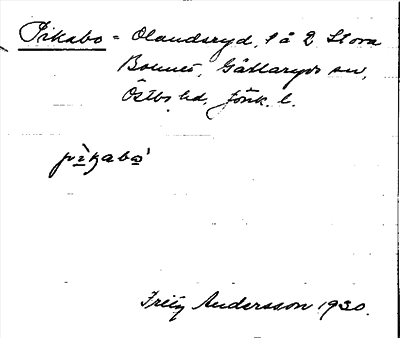 Pikabo = Olandsryd, 1 å 2 Stora
Bonnes, Gällaryds sn,
Östbo hd, Jönk. l.
pìkabo
Fritz Andersson 1930.